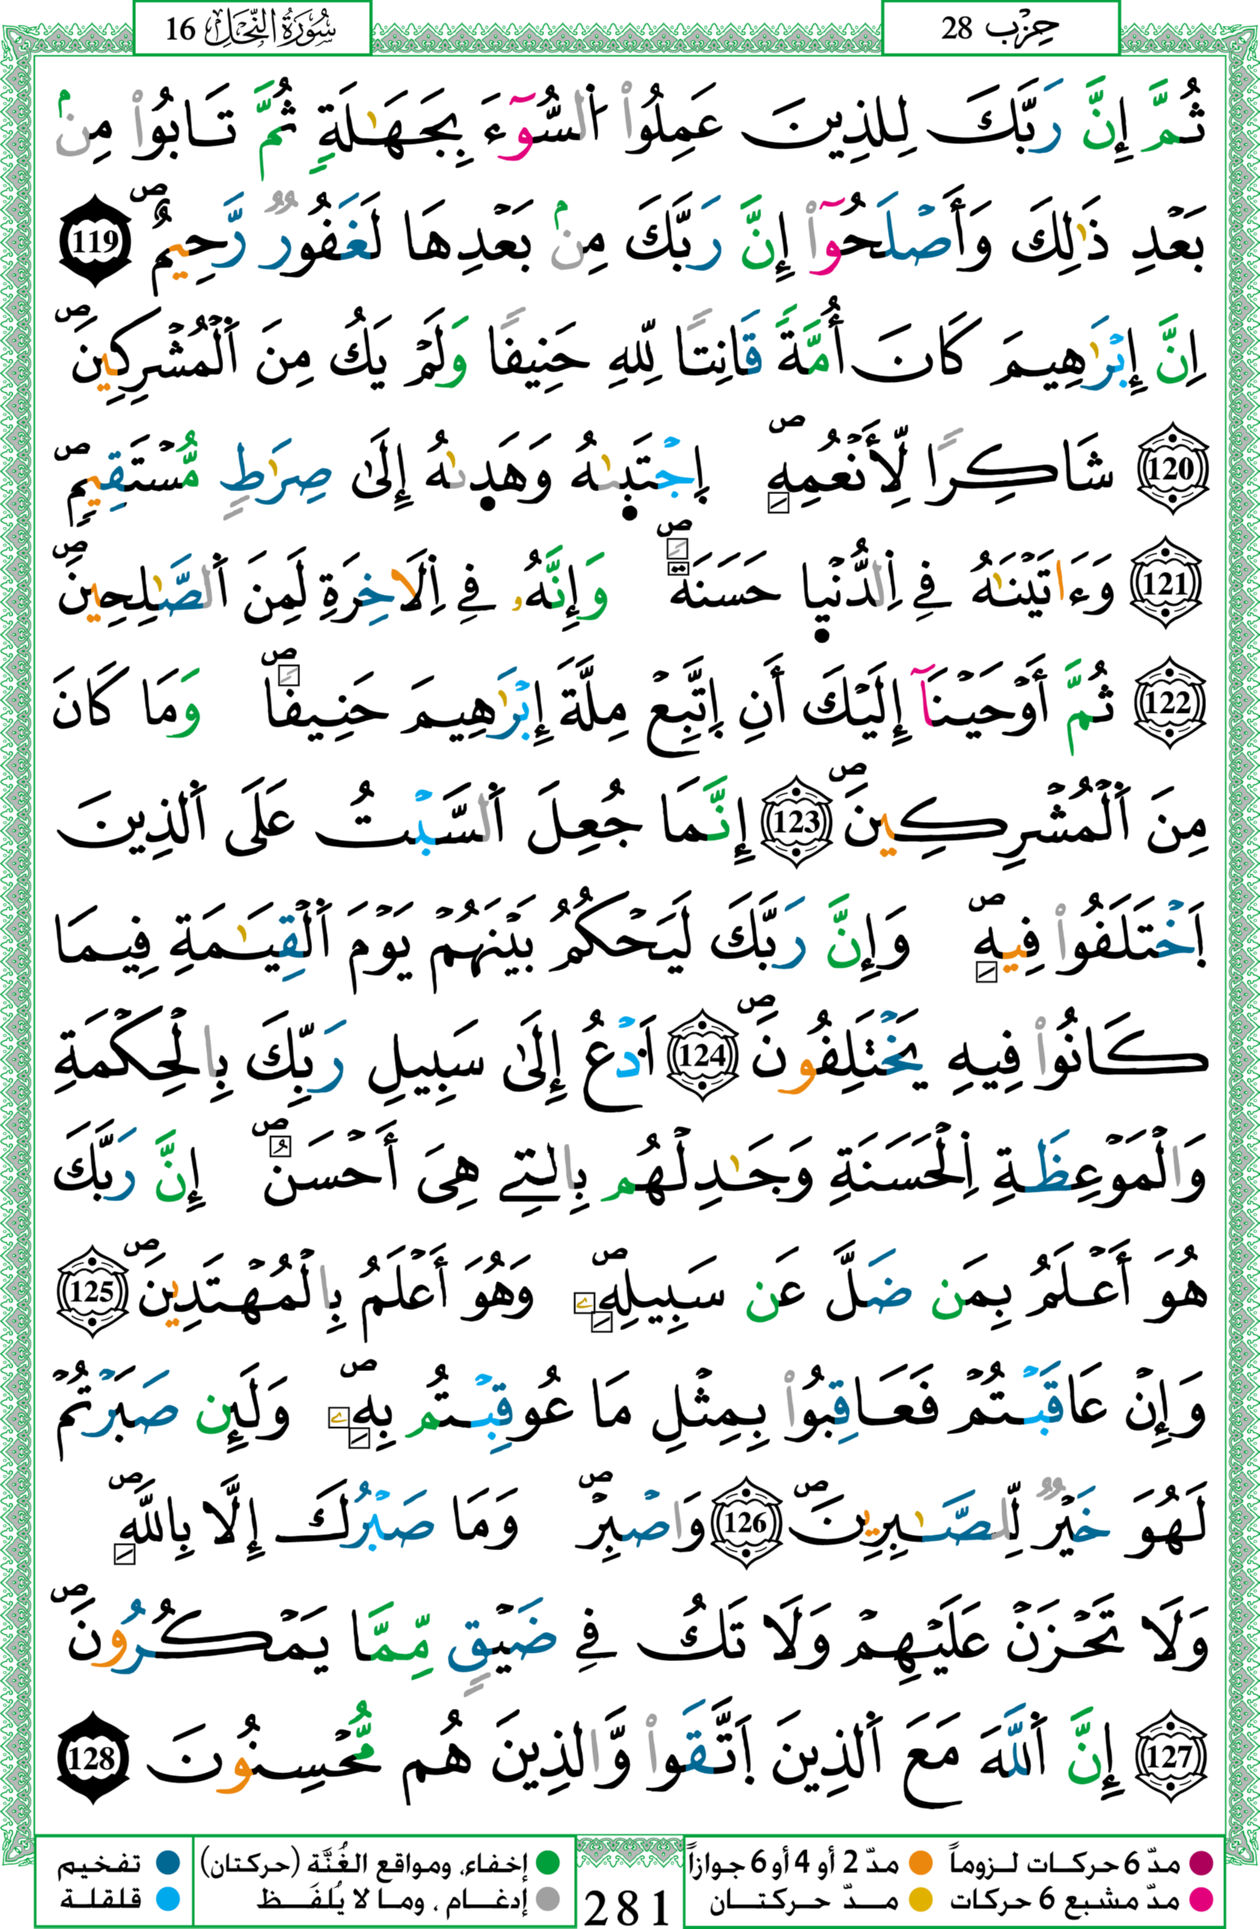 سُورَةُ النَّحْلِ 16
حِزْب 28
ثُمَّ إِنَّ رَبَّكَ لِلذِينَ عَمِلُواْ اُ۬لسُّوٓءَ بِجَهَٰلَةٖ ثُمَّ تَابُواْ مِنۢ
بَعْدِ ذَٰلِكَ وَأَصْلَحُوٓاْ إِنَّ رَبَّكَ مِنۢ بَعْدِهَا لَغَفُورٞ رَّحِيمٌۖ 119
اِنَّ إِبْرَٰهِيمَ كَانَ أُمَّةٗ قَانِتاٗ لِّلهِ حَنِيفاٗ وَلَمْ يَكُ مِنَ اَ۬لْمُشْرِكِينَۖ
120 شَاكِراٗ لِّأَنْعُمِهِۖ اِ۪جْتَبَىٰهُ وَهَدَىٰهُ إِلَىٰ صِرَٰطٖ مُّسْتَقِيمٖۖ
121 وَءَاتَيْنَٰهُ فِے اِ۬لدُّنْيا حَسَنَةٗۖ وَإِنَّهُۥ فِے اِ۬لَاخِرَةِ لَمِنَ اَ۬لصَّٰلِحِينَۖ
122 ثُمَّ أَوْحَيْنَآ إِلَيْكَ أَنِ اِ۪تَّبِعْ مِلَّةَ إِبْرَٰهِيمَ حَنِيفاٗۖ وَمَا كَانَ
مِنَ اَ۬لْمُشْرِكِينَۖ 123 إِنَّمَا جُعِلَ اَ۬لسَّبْتُ عَلَى اَ۬لذِينَ
اَ۪خْتَلَفُواْ فِيهِۖ وَإِنَّ رَبَّكَ لَيَحْكُمُ بَيْنَهُمْ يَوْمَ اَ۬لْقِيَٰمَةِ فِيمَا
كَانُواْ فِيهِ يَخْتَلِفُونَۖ 124 اَ۟دْعُ إِلَىٰ سَبِيلِ رَبِّكَ بِالْحِكْمَةِ
وَالْمَوْعِظَةِ اِ۬لْحَسَنَةِ وَجَٰدِلْهُم بِالتِے هِىَ أَحْسَنُۖ إِنَّ رَبَّكَ
هُوَ أَعْلَمُ بِمَن ضَلَّ عَن سَبِيلِهِۦۖ وَهُوَ أَعْلَمُ بِالْمُهْتَدِينَۖ 125
وَإِنْ عَاقَبْتُمْ فَعَاقِبُواْ بِمِثْلِ مَا عُوقِبْتُم بِهِۦۖ وَلَئِن صَبَرْتُمْ
لَهُوَ خَيْرٞ لِّلصَّٰبِرِينَۖ 126 وَاصْبِرْۖ وَمَا صَبْرُكَ إِلَّا بِاللَّهِۖ
وَلَا تَحْزَنْ عَلَيْهِمْ وَلَا تَكُ فِے ضَيْقٖ مِّمَّا يَمْكُرُونَۖ
127 إِنَّ اَ۬للَّهَ مَعَ اَ۬لذِينَ اَ۪تَّقَواْ وَّالذِينَ هُم مُّحْسِنُونَ 128
مدّ 6 حركات لـزوماً مدّ 2 أو 4 أو 6 جوازاً
مدّ مشبع 6 حركات مـدّ حـركتـان
281
إخفاء، ومواقع الغُنَّة (حركتان) تفخيم
إدغـام ، ومـا لا يُلفَـظ قلقلة